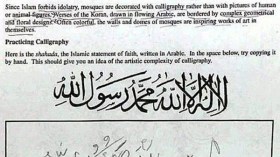 Since Islam forbids idolatry, mosques are decorated with calligraphy rather than with pictures of human or
animal figures. Verses of the Koran, drawn in flowing Arabic, are bordered by complex geometrical
and floral designs. Often colorful, the walls and domes of mosques are inspiring works of art in
themselves.
Practicing Calligraphy
Here is the shahada, the Islamic statement of faith, written in Arabic. In the space below, try copying it
by hand. This should give you an idea of the artistic complexity of calligraphy.
لا إله إلا الله محمد رسول الله